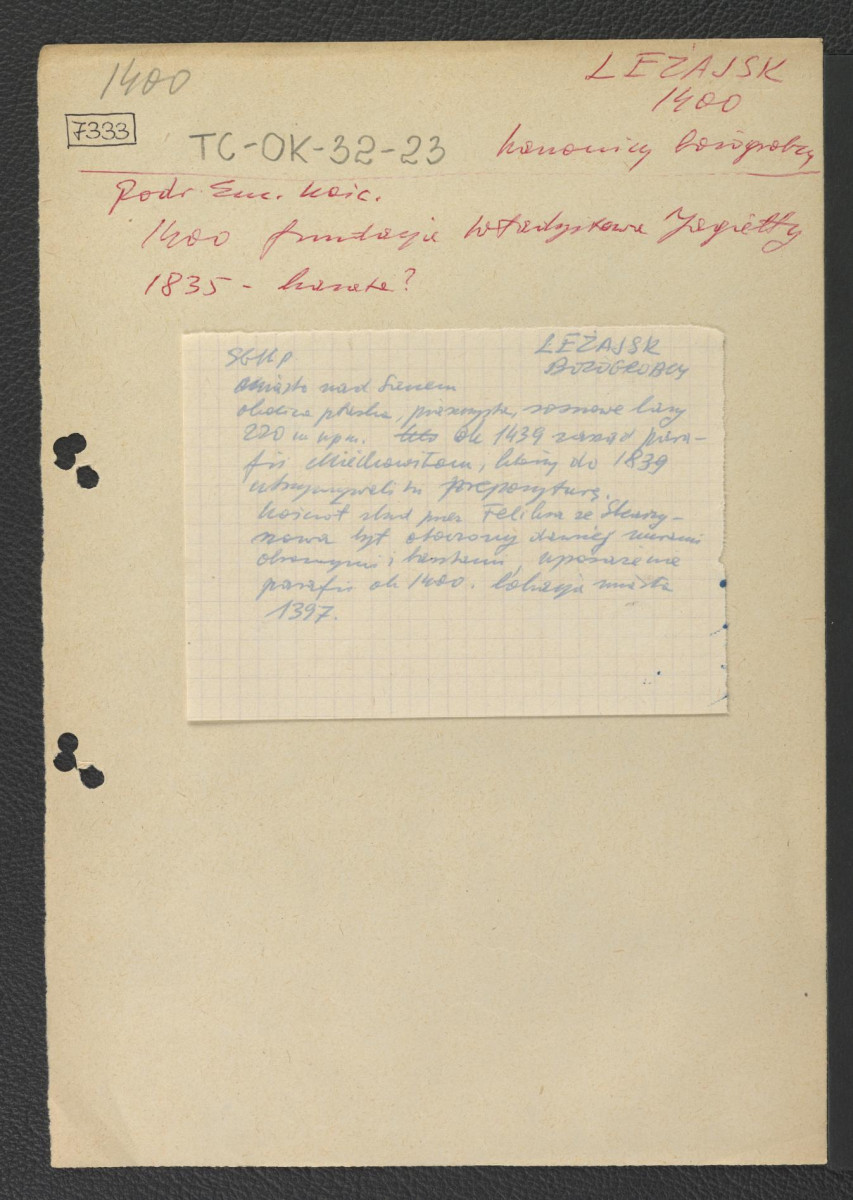 1400
LEŻAJSK
1400
7333
TC-OK-32-23
kanonicy bożogrobcy
Podr. Enc. Kośc.
1400 fundacja Władysława Jagiełły
1835 - kasata?
SGKP
LEŻAJSK
BOŻOGROBCY
miasto nad Sanem
okolica płaska, piaszczysta, sosnowe lasy
220 m npm. ok 1439 zarząd para-
fii Miechowitom, którzy do 1839
utrzymywali tu prepozyturę.
Kościół zbud przez Feliksa ze Skarzy-
szowa był otoczony dawniej murami
obronnymi i basztami, uposażenie
parafii ok 1400. Lokacja miasta
1397.